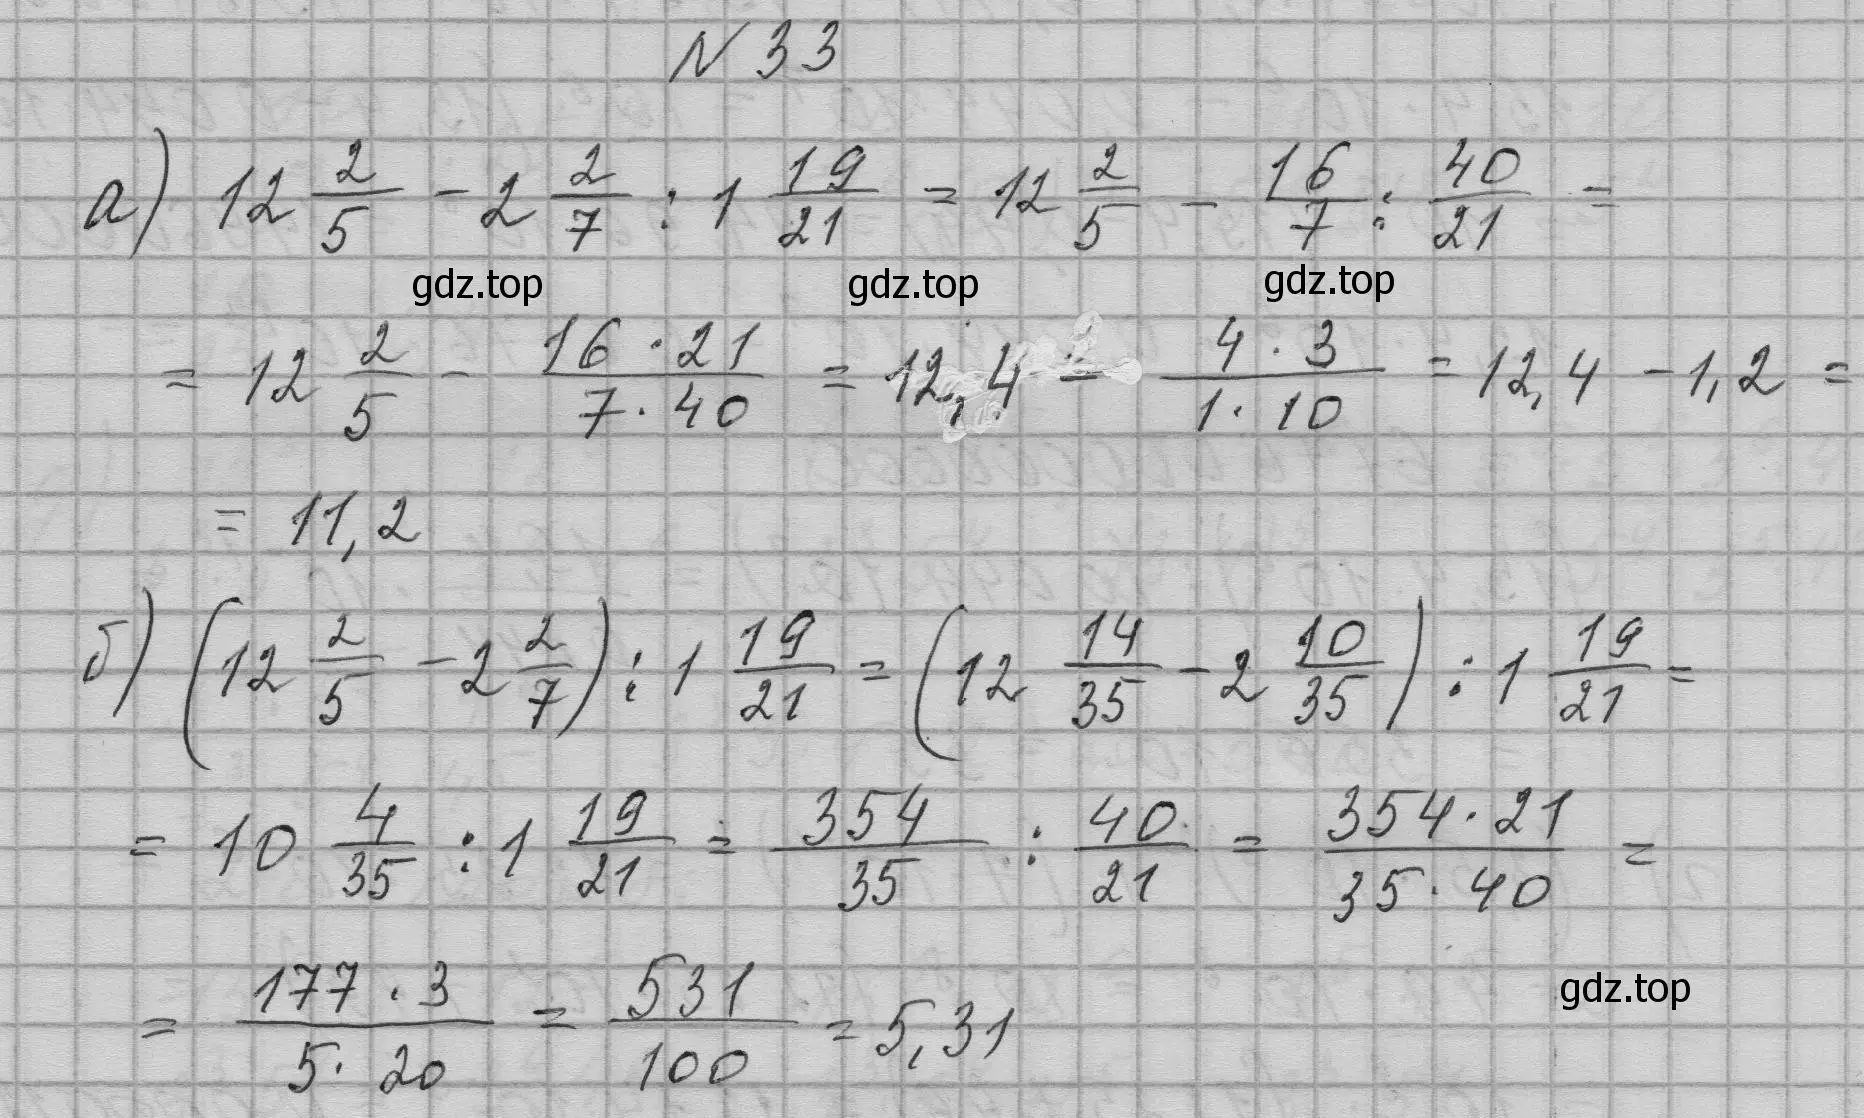 N 33
а) 12 2/5 - 2 2/7 : 1 19/21 = 12 2/5 - 16/7 : 40/21 =
gdz.top gdz.top gdz.top
= 12 2/5 - 16 · 21/7 · 40 = 12,4 - 4 · 3/1 · 10 = 12,4 - 1,2 =
= 11,2
б) (12 2/5 - 2 2/7) : 1 19/21 = (12 14/35 - 2 10/35) : 1 19/21 =
= 10 4/35 : 1 19/21 = 354/35 : 40/21 = 354 · 21/35 · 40 =
= 177 · 3/5 · 20 = 531/100 = 5,31
gdz.top